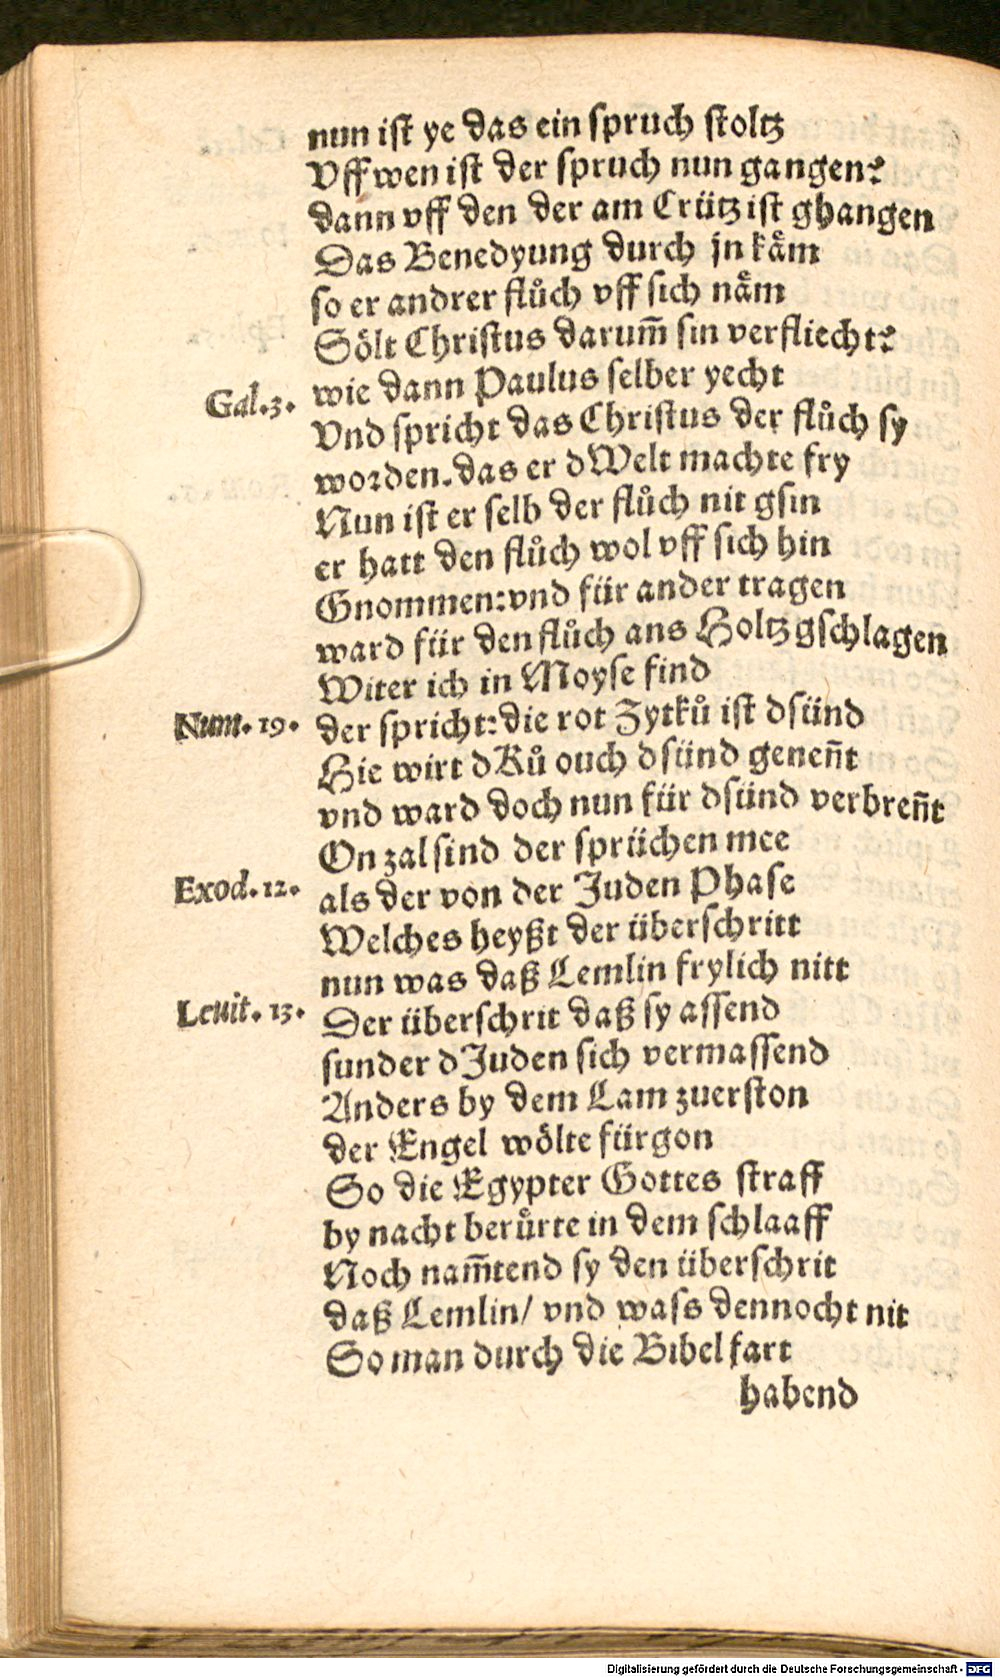 nun ist ye das ein spruch stoltz
Vff wen ist der spruch nun gangen?
dann vff den der am Crütz ist ghangen
Das Benedyung durch jn kåm
so er andrer flůch vff sich nåm
Sölt Christus darum̃ sin verfliecht?
wie dann Paulus selber yecht
Gal.3.
Vnd spricht das Christus der flůch sy
worden. das er dWelt machte fry
Nun ist er selb der flůch nit gsin
er hatt den flůch wol vff sich hin
Gnommen: vnd für ander tragen
ward für den flůch ans Holtz gschlagen
Witer ich in Moyse find
Num. 19.
der spricht: die rot Zytků ist dsünd
Hie wirt dKů ouch dsünd geneñt
vnd ward doch nun für dsünd verbreñt
On zal sind der sprüchen mee
Exod. 12.
als der von der Juden Phase
Welches heyßt der überschritt
nun was daß Lemlin frylich nitt
Leuit. 13.
Der überschrit daß sy assend
sunder dJuden sich vermassend
Anders by dem Lam zuerston
der Engel wölte fürgon
So die Egypter Gottes straff
by nacht berůrte in dem schlaaff
Noch nam̃tend sy den überschrit
daß Lemlin/ vnd wass dennocht nit
So man durch die Bibel fart
habend
Digitalisierung gefördert durch die Deutsche Forschungsgemeinschaft - DFG